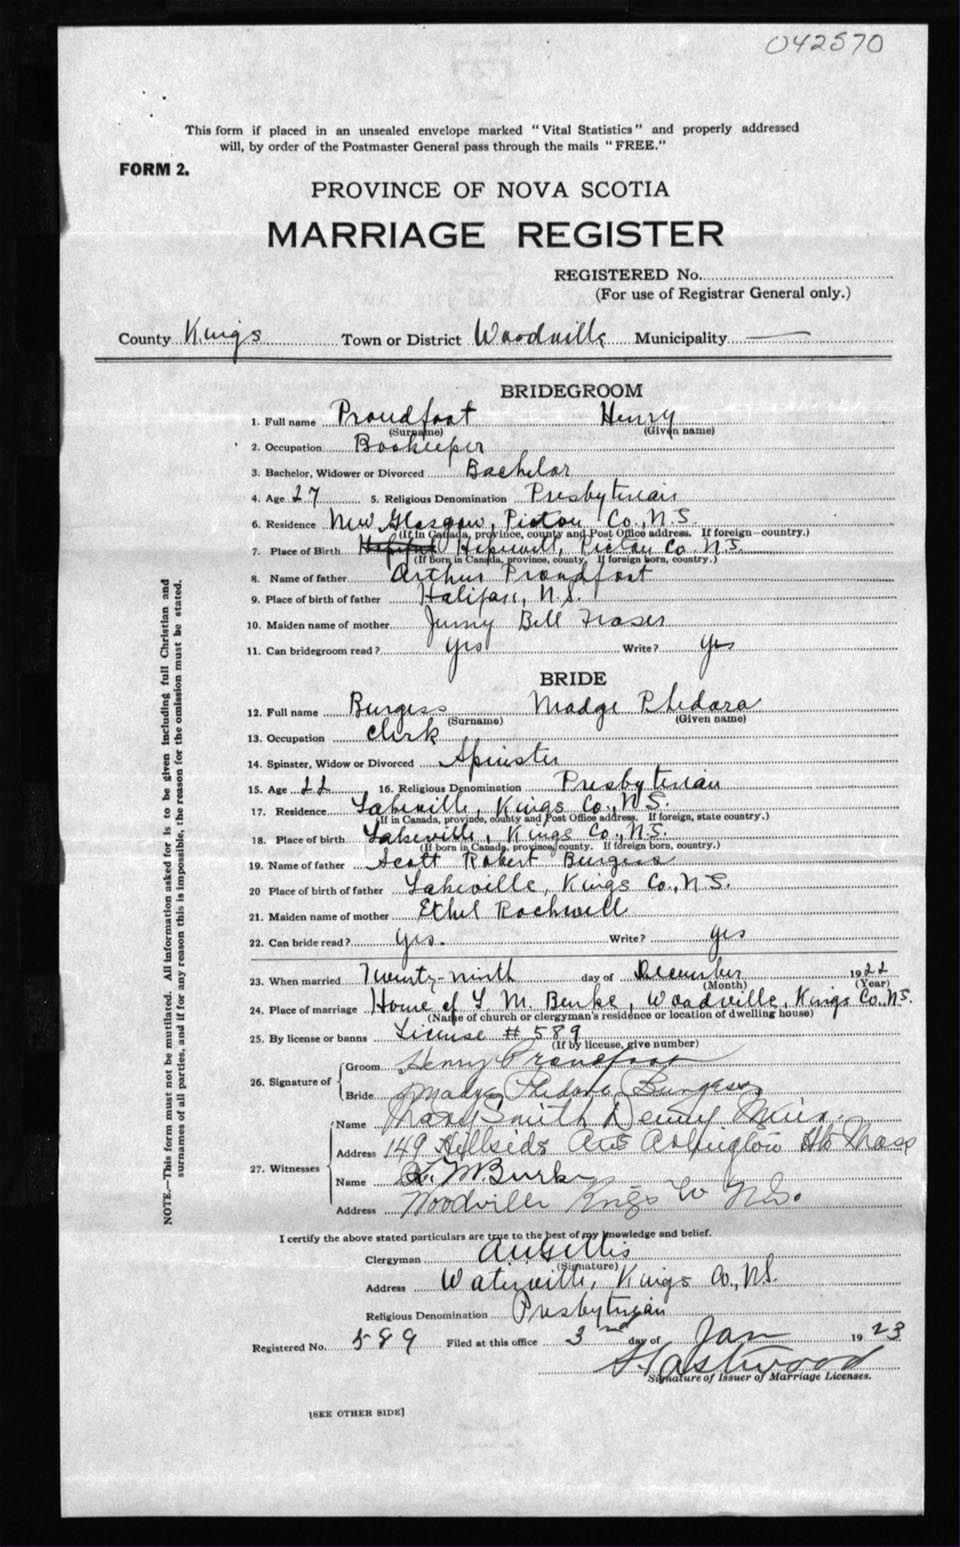 042570
This form if placed in an unsealed envelope marked "Vital Statistics" and properly addressed
will, by order of the Postmaster General pass through the mails "FREE."
FORM 2.
PROVINCE OF NOVA SCOTIA
MARRIAGE REGISTER
REGISTERED No.
(For use of Registrar General only.)
County Kings Town or District Woodville Municipality —
BRIDEGROOM
1. Full name Proudfoot Henry
(Surname) (Given name)
2. Occupation Bookeeper
3. Bachelor, Widower or Divorced Bachelor
4. Age 27 5. Religious Denomination Presbyterian
6. Residence New Glasgow, Pictou Co., N.S.
(If in Canada, province, county and Post Office address. If foreign—country.)
7. Place of Birth Hopewell, Pictou Co. N.S.
(If born in Canada, province, county. If foreign born, country.)
8. Name of father Arthur Proudfoot
9. Place of birth of father Halifax, N.S.
10. Maiden name of mother Jenny Bell Fraser
11. Can bridegroom read? yes Write? yes
BRIDE
12. Full name Burgess Madge Rhedora
(Surname) (Given name)
13. Occupation Clerk
14. Spinster, Widow or Divorced Spinster
15. Age 22 16. Religious Denomination Presbyterian
17. Residence Lakeville, Kings Co., N.S.
(If in Canada, province, county and Post Office address. If foreign, state country.)
18. Place of birth Lakeville, Kings Co., N.S.
(If born in Canada, province, county. If foreign born, country.)
19. Name of father Scott Robert Burgess
20 Place of birth of father Lakeville, Kings Co., N.S.
21. Maiden name of mother Ethel Rockwell
22. Can bride read? yes. Write? yes
23. When married Twenty-ninth day of December 1922
(Month) (Year)
24. Place of marriage Home of L. M. Burke, Woodville, Kings Co., N.S.
(Name of church or clergyman's residence or location of dwelling house)
25. By license or banns License # 589
(If by license, give number)
26. Signature of
Groom Henry Proudfoot
Bride Madge Rhedora Burgess
27. Witnesses
Name Smith
Address 149 Hillside Ave Arlington Hts Mass
Name L. M. Burke
Address Woodville Kings Co N.S.
I certify the above stated particulars are true to the best of my knowledge and belief.
Clergyman Gillis
(Signature)
Address Waterville, Kings Co., N.S.
Religious Denomination Presbyterian
Registered No. 589 Filed at this office 3rd day of Jan 1923
Eastwood
Signature of Issuer of Marriage Licenses.
[SEE OTHER SIDE]
NOTE.—This form must not be mutilated. All information asked for is to be given including full Christian and
surnames of all parties, and if for any reason this is impossible, the reason for the omission must be stated.